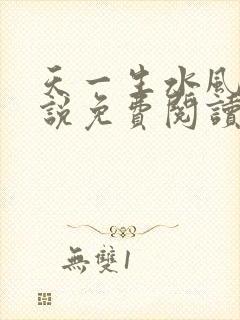 天一生水風
說免費閱讀
無雙1